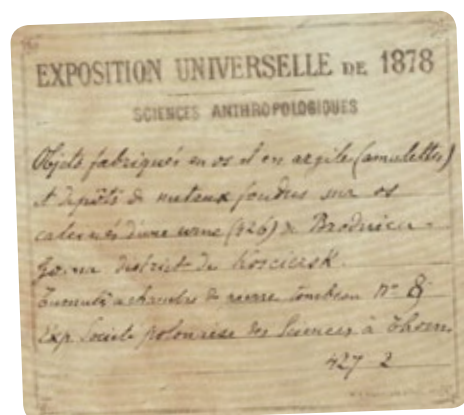 EXPOSITION UNIVERSELLE DE 1878
SCIENCES ANTHROPOLOGIQUES
Objets fabriqués en os et en argile (amulettes)
et dépôts de metaux fondus sur os
calcinés d'une urne (426) de Brodnica -
district de
Tumuli a chambre de pierre tombeau No 8
Exp. Société polonaise des Sciences à Thorn
427 2